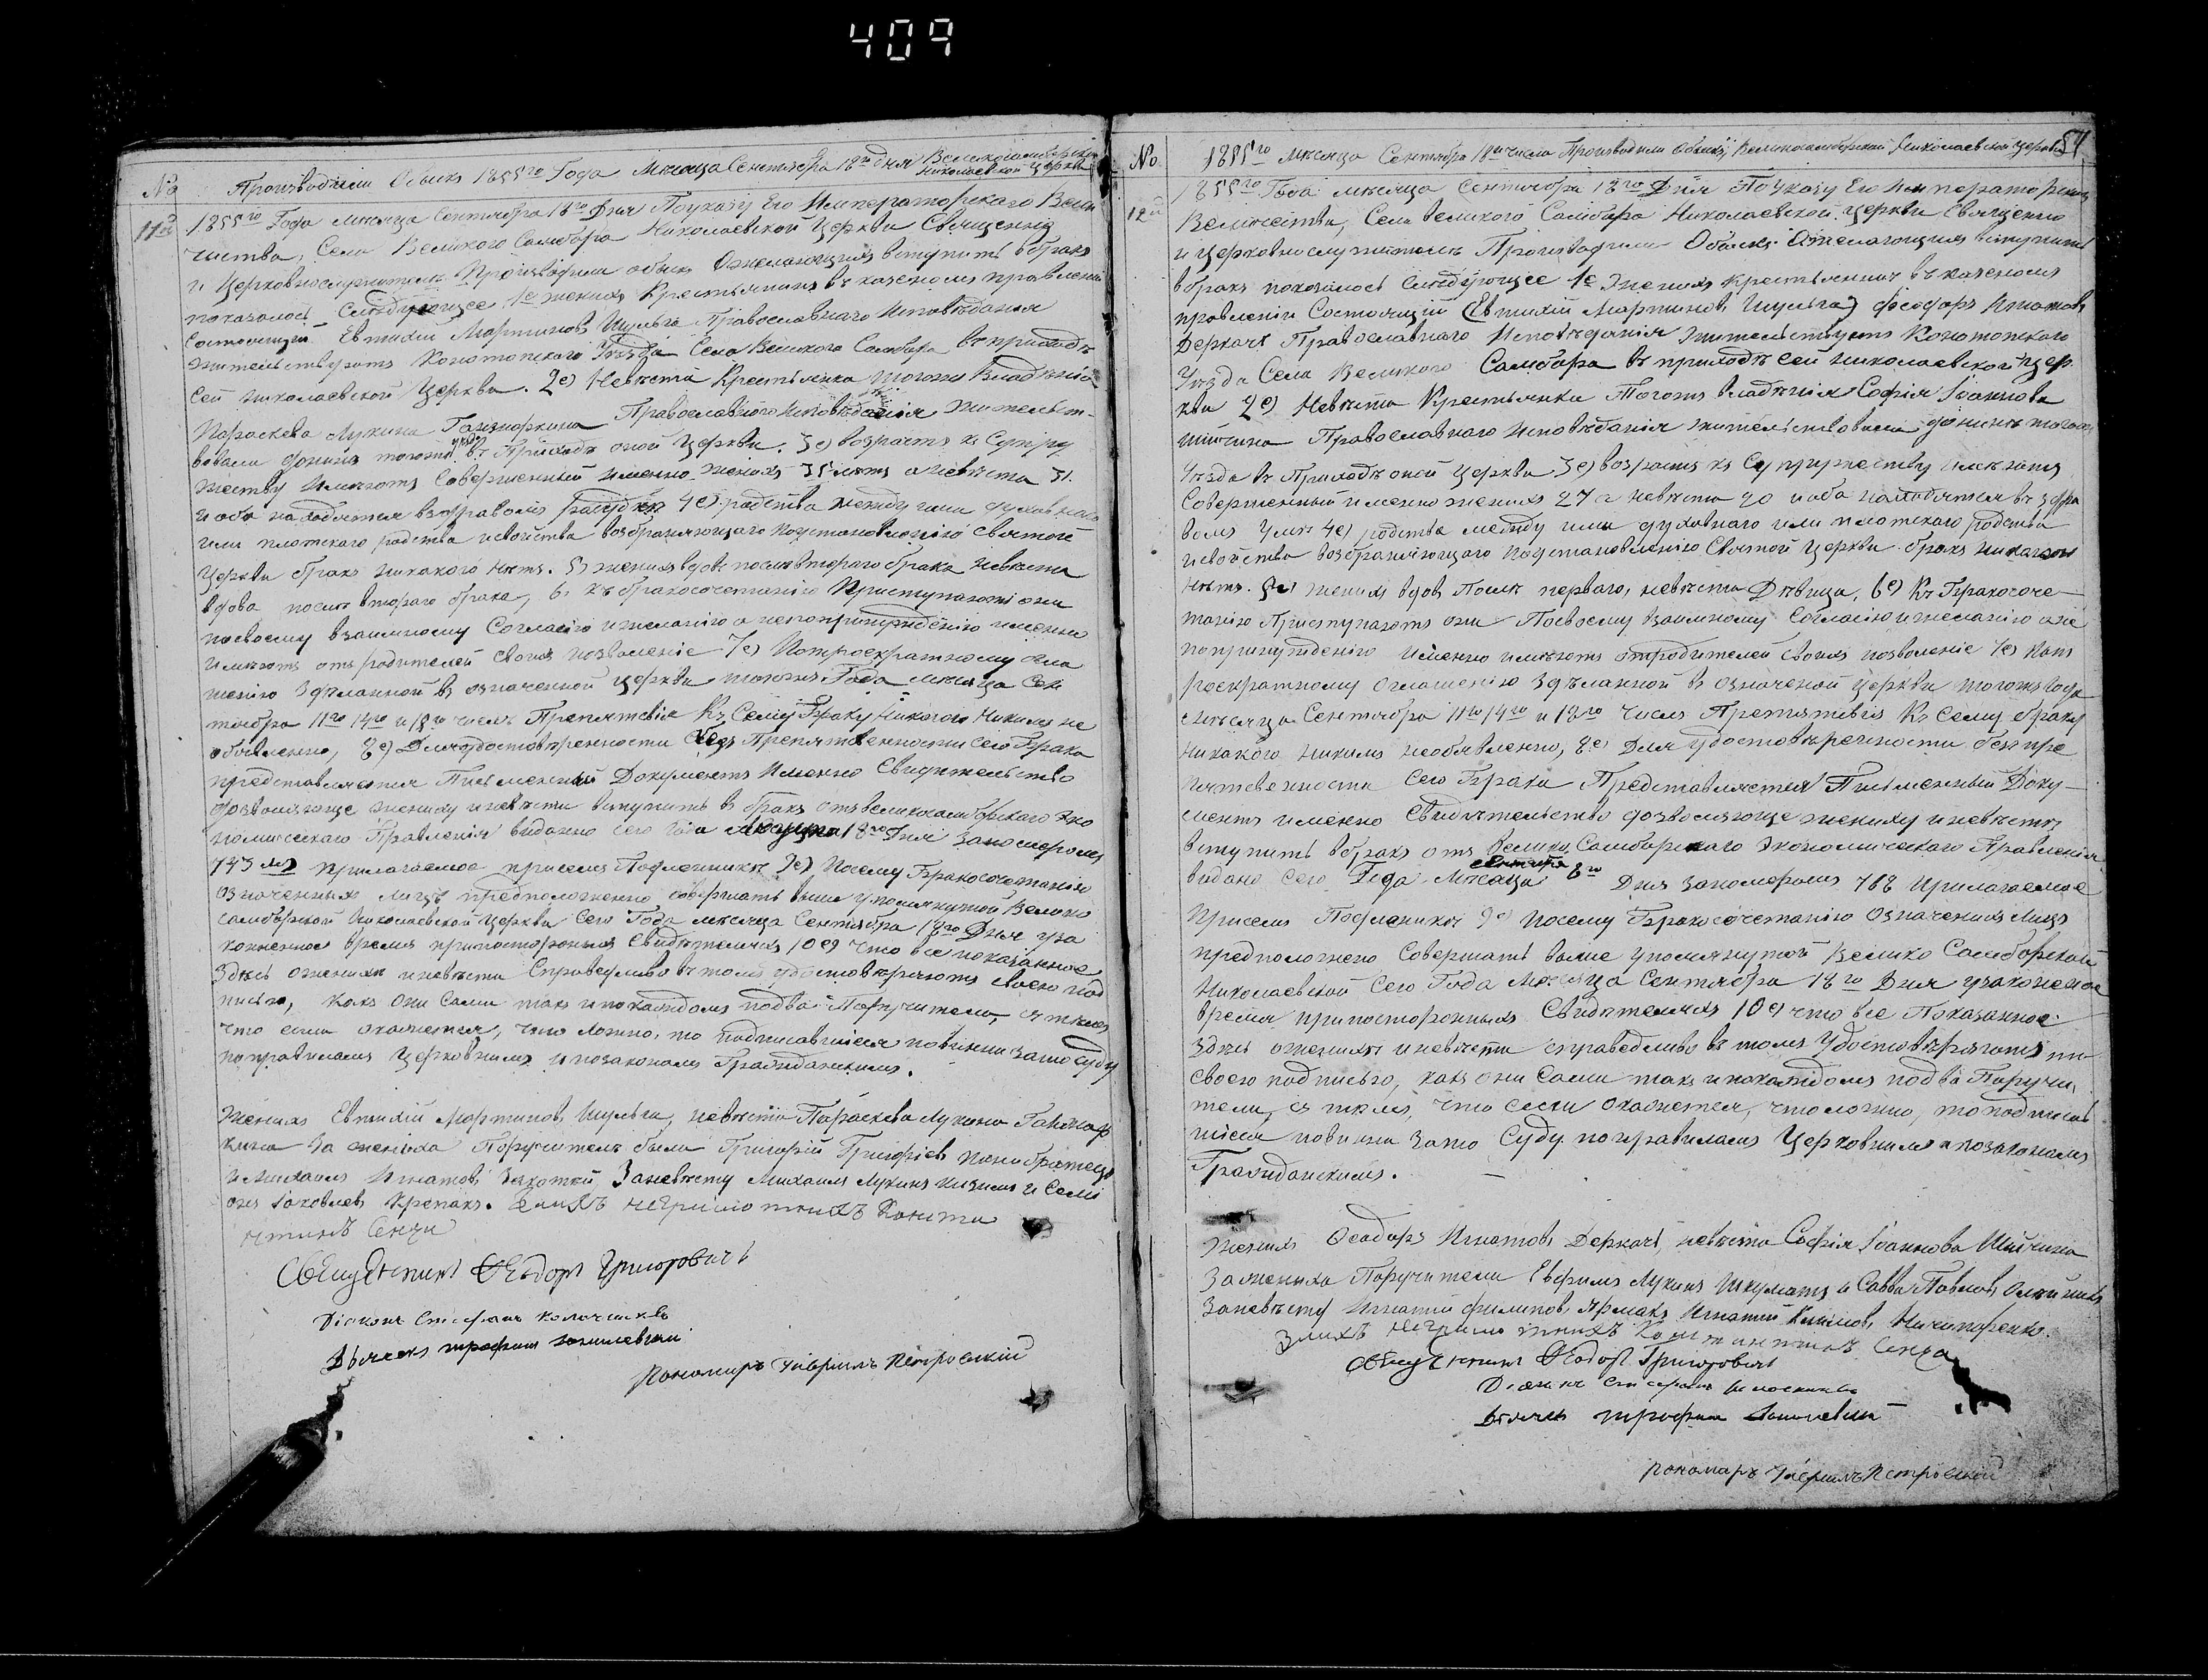 409
No
Производили Обыск 1855го Года Месяца Сентября 18го дня Великосамборской
Николаевской Церкви
11й
1855го Года месяца Сентября 18го Дня По указу Его Императорскаго Вели
чества, Села Великого Самбора Николаевской Церкви Священник
и Церковнослужители Производили обыск О желающих вступить в брак
показалось Следующее 1е жених Крестьянин в казеном правлении
состоящий Евтихий Мартинов Шульга Православнаго Исповѣдания
жительствует Конотопского Уѣзда Села Великого Самбора в приходѣ
сей Николаевской Церкви. 2е) Невѣста Крестьянка тогож Владѣния
Параскева Лукина Православного Исповѣдания жительст-
вовала донинѣ тогож в Приходѣ оной Церкви. 3е) возраст к Супру
жеству имѣют Совершенный именно жених 35 лѣт а невѣста 31.
и оба находятся в здравом разсудкѣ 4е) родства между ими духовнаго
или плотскаго родства и свойства возбраняющаго по установлению Святой
Церкви брак никакого нѣт. 5) жених вдов послѣ втораго брака невѣста
вдова послѣ втораго брака, 6. къ бракосочетанию Приступают они
по своему взаимному Согласию и желанию а не по принуждению именно
имѣют от родителей своих позволение 7е) По троекратному огла
шению здѣланной в означенной церкви тогож Года месяца Сен
тября 11го 14го и 18го числ Препятствия Къ Сему Браку Никакого Никим не
объявленно, 8е) Для удостовѣренности без Препятственности сего Брака
представляется Писменный Документ Именно Свидѣтельство
дозволяюще жениху и невѣсте вступить в брак от великосамборскаго Эко
номическаго Правления видано сего Года 18го Дня за номером
743м прилагаемое при сем Подленником 9е) По сему Бракосочетанию
означенных лиц предположенно совершать выше упомянутой Велико
самборской Николаевской Церкви Сего Года месяца Сентября 18го Дня уза
коненное время при посторонних свидѣтелях 10е) что все показанное
здѣсь о женихѣ и невѣсте справедливо в том удостовѣряют своею под
писью, как они Сами так и по каждом по два Поручителя, с тѣм
что если окажется, что ложно, то подписавшиеся повинни за то Суду
по правилам Церковним и по законам Гражданским.
Жених Евтихий Мартинов Шульга, невѣста Параскева Лукина
за жениха Поручители были Григорий Григориев
и Михаил Игнатов За невѣсту Михаил Лукин и Семи
он Яковлев Крепак. За них неграмотних Конста
нтинъ Сенча
Священник Феодор Григорович
Діакон Стефан
Дьячек Трофим
Пономарь Гавриил Петровский
54
No
1855го месяца Сентября 18го числа Производили Обыск Великосамборской Николаевской Церкви
12й
1855го Года месяца Сентября 18го Дня По указу Его Императорскаго
Величества, Села Великого Самбора Николаевской церкви Священно
и церковнослужители Производили Обыск О желающих вступить
в брак показалось Слѣдующее 1е Жених Крестьянин въ казеном
правлении Состоящий (Евтихий Мартинов Шульга) Феодор Игнатов
Деркач Православнаго Исповѣдания жительствует Конотопского
Уѣзда Села Великого Самбора въ приходѣ сей николаевской Цер
кви 2е) Невѣста Крестьянка Тогож владѣния София Иоаннова
Православнаго Исповѣдания жительствовала донинѣ тогож
Уѣзда в Приходѣ оной церкви 3е) возраст к Супружеству имѣют
Совершенный именно жених 27 а невѣста 20 и оба находятся въ здра
вом умѣ 4е) родства между ими духовнаго или плотскаго родства
и свойства возбраняющаго по установлению Святой Церкви брак никакого
нѣт. 5е) жених вдов Послѣ перваго, невѣста Дѣвица. 6е) Къ Бракосоче-
танию Приступают они По своему взаимному Согласию и желанию а не
по принуждению именно имѣют от родителей своих позволение 7е) По т
роекратному оглашению здѣланной в означеной церкви тогож Года
месяца Сентября 11го 14го и 18го числ Препятствия Къ Сему браку
никакого никим необявленно, 8е) Для удостовѣренности без пре
пятственности Сего Брака Представляется Писменный Доку-
мент именно Свидѣтельство дозволяюще жениху и невѣстѣ
вступить в брак от Велико Самборскаго Экономическаго Правления
видано сего Года Месяца сентября 8го Дня за номером 768 Прилагаемое
При сем Подленником 9е) По сему Бракосочетанию Означених Лиц
предположено Совершать выше упомянутой Велико Самборской
Николаевской Сего Года Месяца Сентября 18го Дня узаконеное
время при посторонних Свидѣтелях 10е) что все Показанное
здѣсь о женихѣ и невѣсте справедливо въ том Удостовѣряют
своею подписью, как они Сами так и по каждом по два Поручи
тели, с тѣм, что если окажется, что ложно, то подписав
шиеся повинни за то Суду по правилам Церковним и по законам
Гражданским.
Жених Феодор Игнатов Деркач, невѣста София Иоаннова
За жениха Поручители Ефим Лукин и Савва Павлов
За невѣсту Игнатий Филипов Ярмак Игнатий Ничипоренко.
За них неграмотних Константин Сенча
Священник Феодор Григорович
Діакон Стефан
Дьячек Трофим
Пономарь Гавриил Петровский